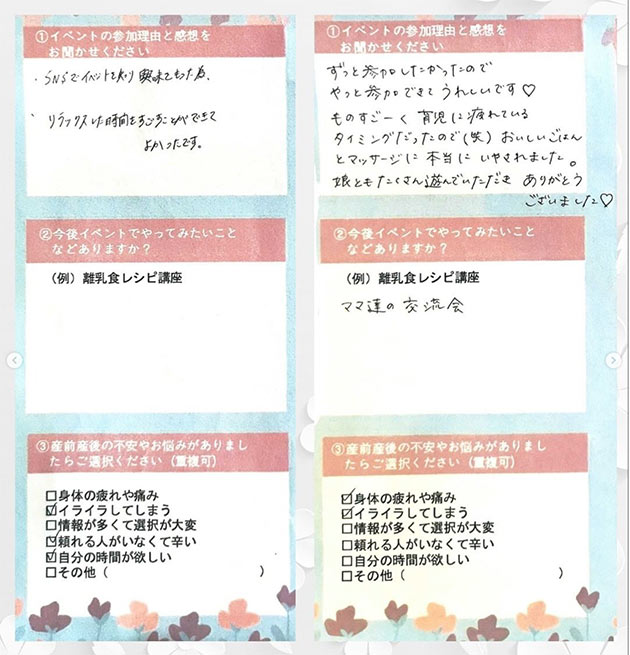 ①イベントの参加理由と感想を
お聞かせください
・SNSでイベントを知り興味をもった為。
・リラックスした時間をすごすことができて
よかったです。
②今後イベントでやってみたいこと
などありますか？
（例）離乳食レシピ講座
③産前産後の不安やお悩みがありまし
たらご選択ください（重複可）
□身体の疲れや痛み
☑イライラしてしまう
□情報が多くて選択が大変
☑頼れる人がいなくて辛い
☑自分の時間が欲しい
□その他（　　　）
①イベントの参加理由と感想を
お聞かせください
ずっと参加したかったので
やっと参加できてうれしいです♡
ものすごーく育児に疲れている
タイミングだったので(笑)おいしいごはん
とマッサージに本当にいやされました。
娘ともたくさん遊んでいただき ありがとう
ございました♡
②今後イベントでやってみたいこと
などありますか？
（例）離乳食レシピ講座
ママ達の交流会
③産前産後の不安やお悩みがありまし
たらご選択ください（重複可）
☑身体の疲れや痛み
☑イライラしてしまう
□情報が多くて選択が大変
□頼れる人がいなくて辛い
□自分の時間が欲しい
□その他（　　　）